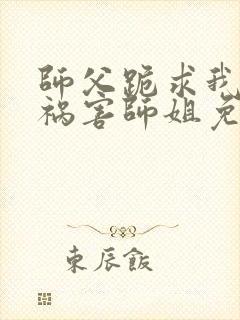 師父跪求我
祸害師姐免
東辰飯